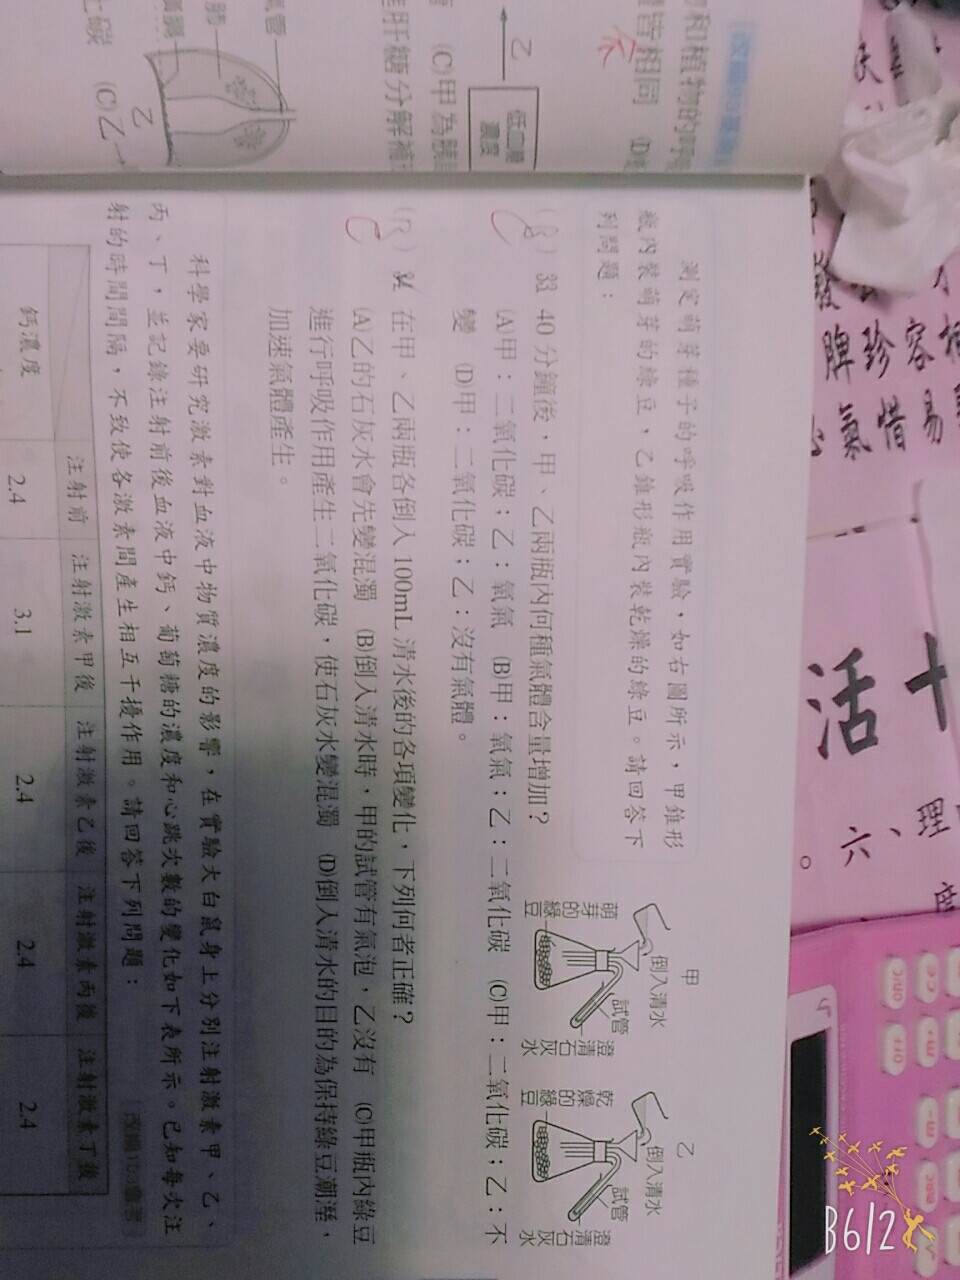 和植物的呼
皆相同 (D)
乙
低血糖
濃度
(C)甲為胰
肝糖分解補
氣管
肺
乙
(C)乙
測定萌芽種子的呼吸作用實驗，如右圖所示，甲錐形
瓶內裝萌芽的綠豆，乙錐形瓶內裝乾燥的綠豆。請回答下
列問題：
甲
倒入清水
試管
萌芽的綠豆
澄清石灰水
乙
倒入清水
試管
乾燥的綠豆
澄清石灰水
(B) 33. 40 分鐘後，甲、乙兩瓶內何種氣體含量增加？
C
(A)甲：二氧化碳；乙：氧氣 (B)甲：氧氣；乙：二氧化碳 (C)甲：二氧化碳；乙：不
變 (D)甲：二氧化碳；乙：沒有氣體。
34. 在甲、乙兩瓶各倒入 100mL 清水後的各項變化，下列何者正確？
C
(A)乙的石灰水會先變混濁 (B)倒入清水時，甲的試管有氣泡，乙沒有 (C)甲瓶內綠豆
進行呼吸作用產生二氧化碳，使石灰水變混濁 (D)倒入清水的目的為保持綠豆潮溼，
加速氣體產生。
科學家要研究激素對血液中物質濃度的影響，在實驗大白鼠身上分別注射激素甲、乙、
丙、丁，並記錄注射前後血液中鈣、葡萄糖的濃度和心跳次數的變化如下表所示。已知每次注
射的時間間隔，不致使各激素間產生相互干擾作用。請回答下列問題：
注射前 注射激素甲後 注射激素乙後 注射激素丙後 注射激素丁後
鈣濃度 2.4 3.1 2.4 2.4 2.4
脾珍容
氣惜易
活十
。六、理
度
OFF
B612